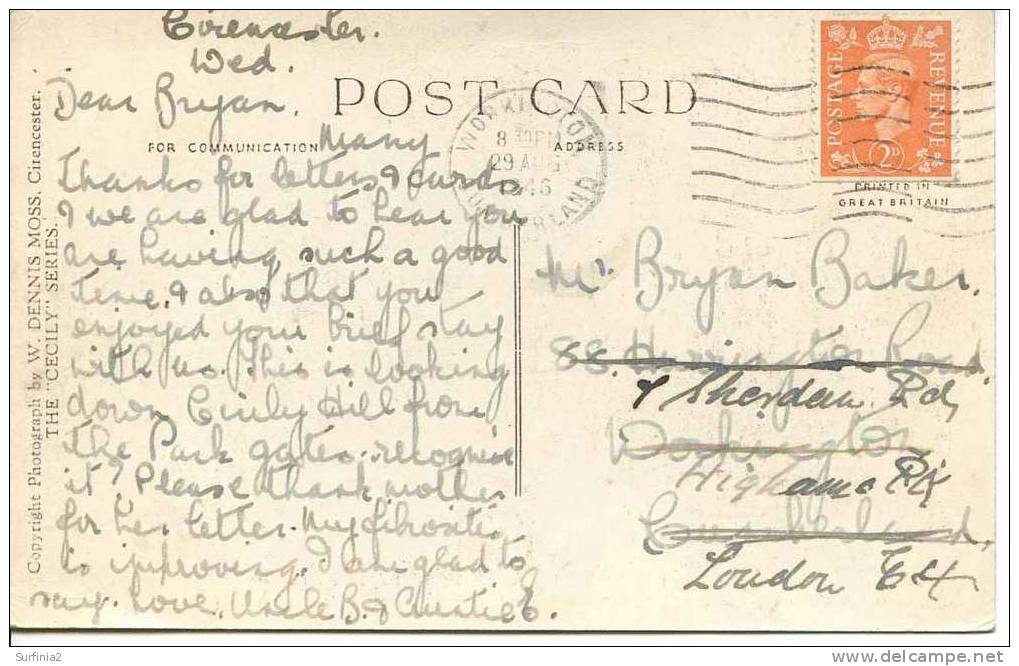 Cirencester.
Wed.
Dear Bryan,
Many
Thanks for letters & cards
& we are glad to hear you
are having such a good
time, & also that you
enjoyed your brief stay
with us. This is looking
down Cecily Hill from
the Park gates. recognise
it? Please thank mother
for her letter. My fibrositis
is improving, I am glad to
say. Love, Uncle B. & Auntie
POST CARD
FOR COMMUNICATION
ADDRESS
8 30 PM
29 AUG
CUMBERLAND
POSTAGE
REVENUE
2D
PRINTED IN
GREAT BRITAIN
Mr. Bryan Baker,
88. Harrington Road.
Workington
Cumberland.
Sherdan Rd,
Highams Pk
London E4
Copyright Photograph by W. DENNIS MOSS, Cirencester.
THE "CECILY" SERIES.
Surfinia2
www.delcampe.net